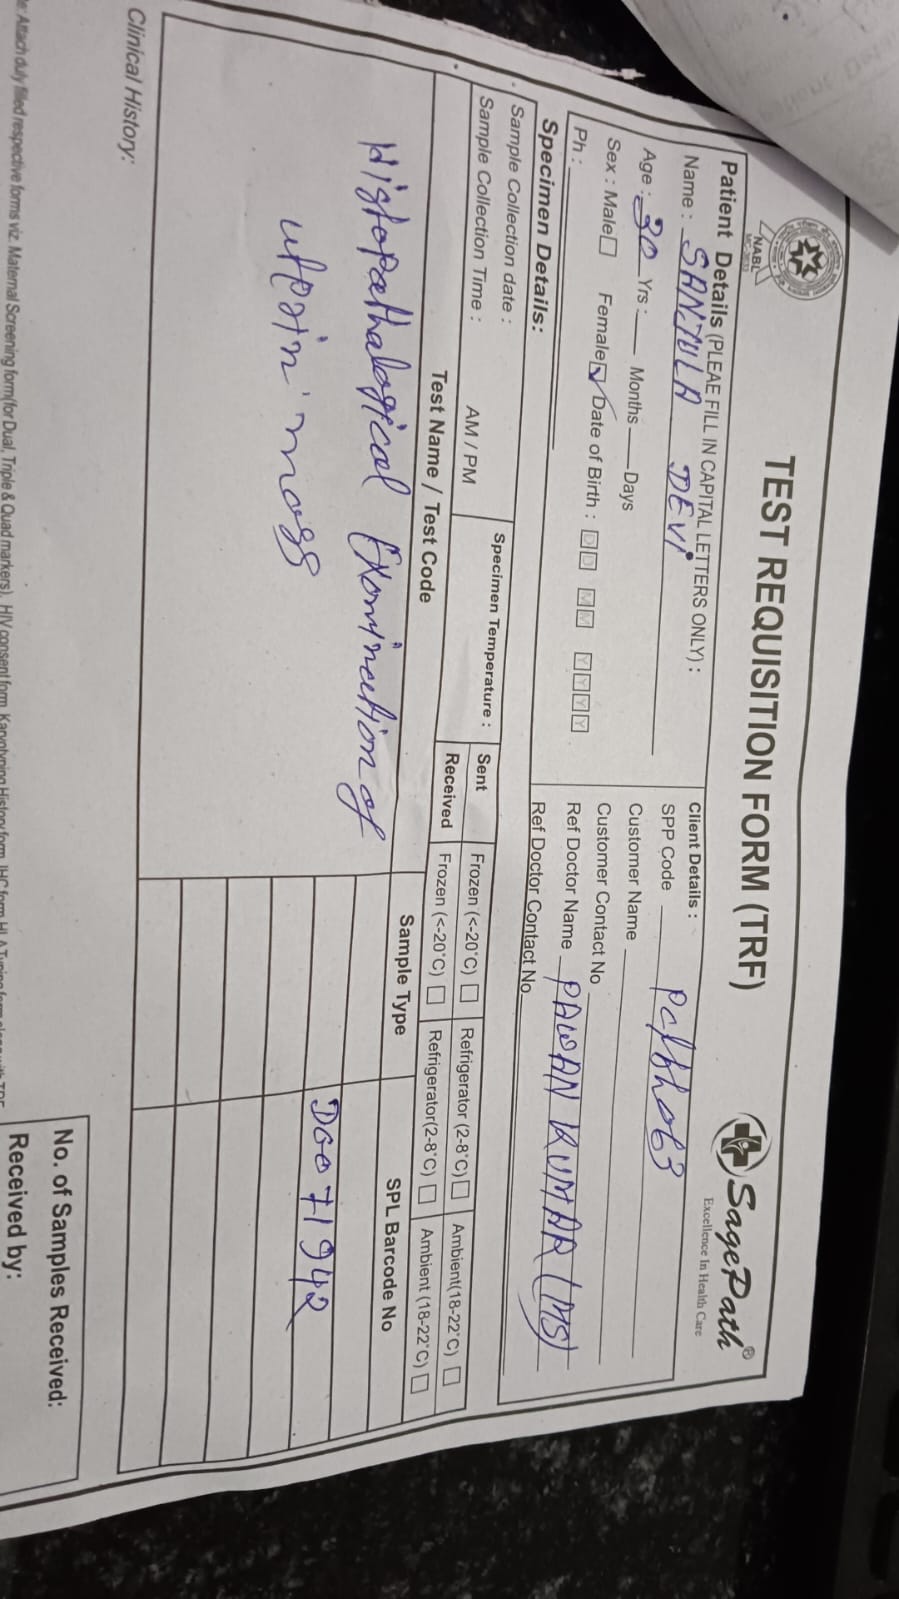 NABL
TEST REQUISITION FORM (TRF)
SagePath®
Excellence In Health Care
Patient Details (PLEAE FILL IN CAPITAL LETTERS ONLY) :
Name : SANJULA DEVI
Age : 30 Yrs : Months Days
Sex : Male Female Date of Birth : D D M M Y Y Y Y
Ph :
Client Details :
SPP Code
Customer Name
Customer Contact No
Ref Doctor Name PAWAN KUMAR (MS)
Ref Doctor Contact No
Specimen Details:
Sample Collection date :
Sample Collection Time : AM / PM
Specimen Temperature :
Sent Frozen (<-20°C) Refrigerator (2-8°C) Ambient(18-22°C)
Received Frozen (<-20°C) Refrigerator(2-8°C) Ambient (18-22°C)
Test Name / Test Code Sample Type SPL Barcode No
Histopathalogical Examination of
D0071942
Clinical History:
Attach duly filled respective forms viz. Maternal Screening form(for Dual, Triple & Quad markers), HIV consent form, Karyotyping History form, IHC form, HLA Typing form
No. of Samples Received:
Received by: